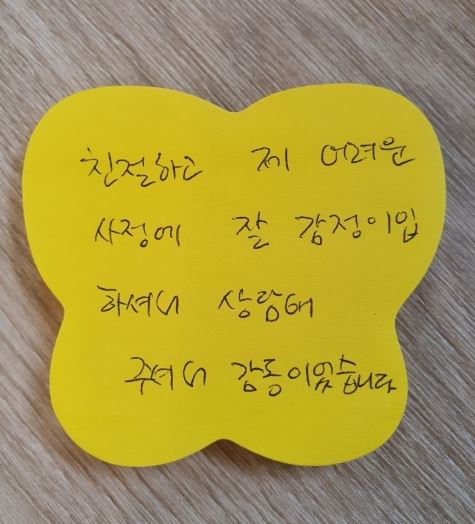 친절하고 제 어려운
사정에 잘 감정이입
하셔서 상담해
주셔서 감동이었습니다